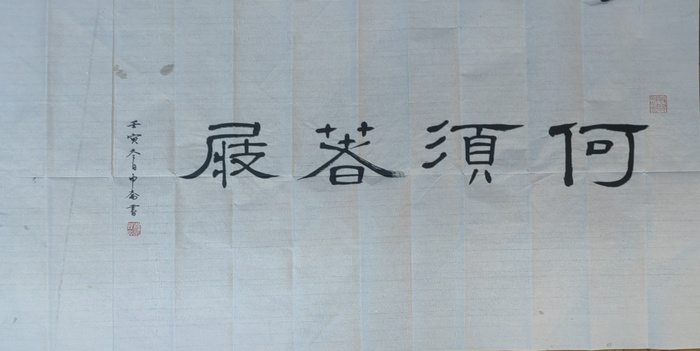 何須著屐
壬寅冬日书